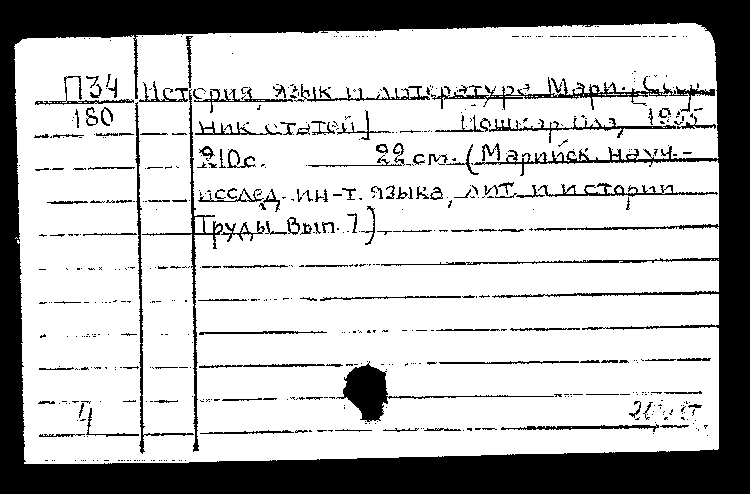 П34 История, язык и литература Мари. [Сбор
180 ник статей] Йошкар-Ола, 1955
210с. 22 см. (Марийск. науч.-
исслед. ин-т. языка, лит. и истории
Труды Вып. 7).
4